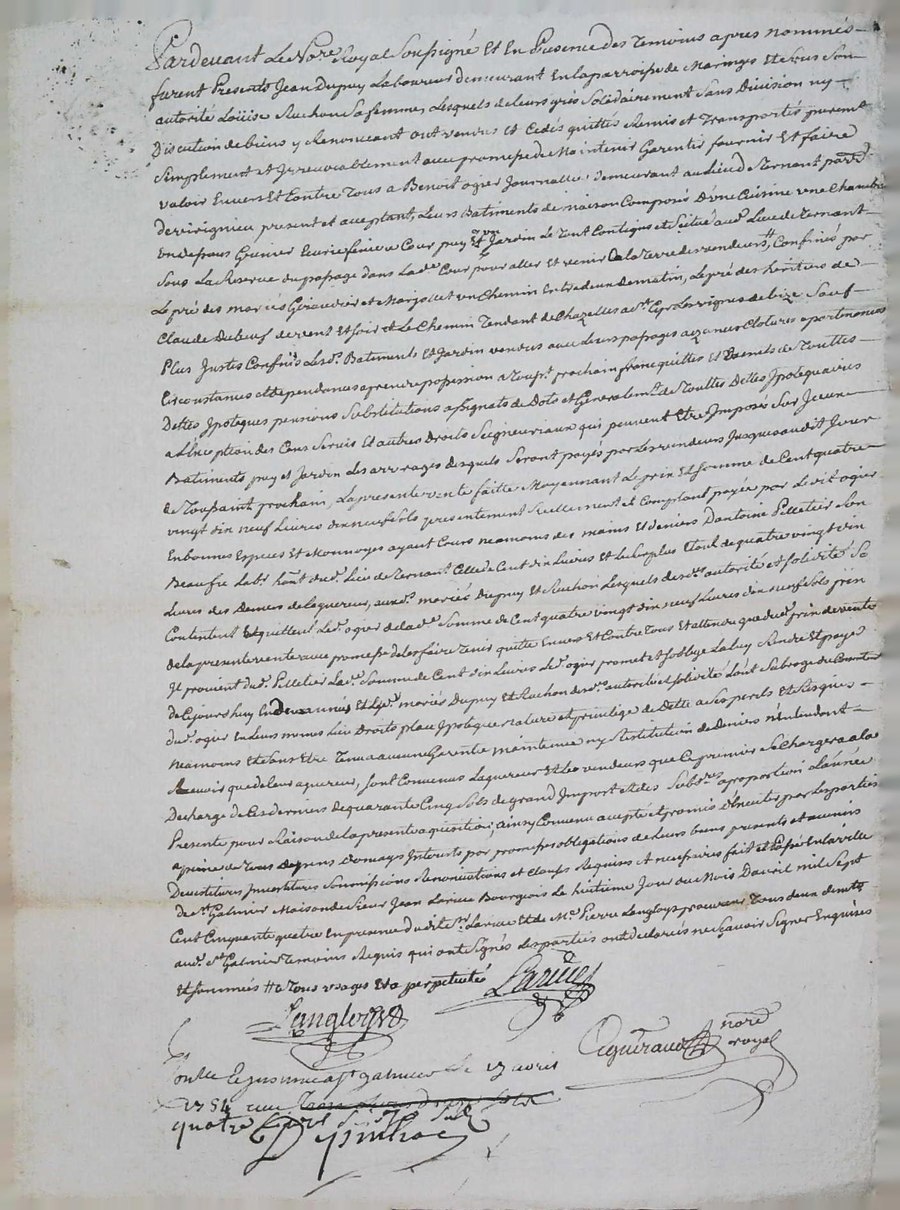 Pardevant Le Nore Royal Soussigné Et En Presence Des Temoins apres nommés
furent Presents Jean Dupuy Laboureur Demeurant En la parroisse de Maringes Et de Sous Son
autorité Loüise Ruchon Sa femme, Lesquels de leurs grés Solidairement Sans Division ny
Discution de biens y Renonceant ont vendus et Cedés quittes Remis et Transportés purement
Simplement et Irrevocablement avec promesse de Maintenir Garentir fournir Et faire
valoir Envers Et Contre Tous a Benoit ogier Journallier Demeurant au Lieu de Ternant parr.
de virignieu present et acceptant, Leurs Batiments de maison Composés D'une Cuisine une Chambre
au dessous Grenier Ecurie feniere Cour puy et un Jardin Le Tout Contigus et Scitué aud. Lieu de Ternant
Sous La Reserve du passage dans Lade. Cour pour aller et venir a la Terre des vendeurs, Confiné par
Le pré des mariés et un Chemin Entre deux De matin, Le pré des heritiers de
Claude Dubeuf de vent Et Soir et Le Chemin Tendant de Chazelles a St. Cyr Les vignes de bize Sauf
Plus Justes Confins Lesd. Batiments Et Jardin vendus avec Leurs passages aizances Clotures apartenances
Circonstances et Dependances a prendre possession a Toust. prochain franc quittes Et Exemts de Touttes
Dettes Ipoteques pensions Substitutions assignats de Dots et Generalemt. de Touttes Dettes Ipotequaires
a L'exeption des Cens Servis Et autres Droits Seigneuriaux qui peuvent Etre Imposés Sur Iceux
Batiments puy et Jardin Les arrerages desquels Seront payés par Les vendeurs Jusques audit Jour
de Toussaint prochain, La presente vente faitte Moyennant Le prix Et Somme de Cent quatre
vingt dix neuf Livres dix neuf Sols presentement Reellement et Comptant payée par Ledit ogier
En bonnes Especes Et Monnoyes ayant Cours neamoins des mains Et deniers D'antoine Pelletier Son
Beaufre Labr. hant. dud. Lieu de Ternant Celle de Cent dix Livres Et Le Surplus Etant de quatre vingt dix
Livres des Deniers de Laquereur, auxd. mariés Dupuy Et Ruchon Lesquels de ses. autorité et Solidité Se
Contentent Et quittent Led. ogier de Lade. Somme de Cent quatre vingt dix neuf Livres dix neuf Sols prix
de La presente vente avec promesse de Les faire Tenir quitte Envers Et Contre Tous Et attendu que dud. prix de vente
Il provient dud. Pelletier Lad. Somme de Cent dix Livres Led. ogier promet et Soblige La luy Rendre Et payer
de Ce jourdhuy En deux années Et Lesd. mariés Dupuy Et Ruchon de ses. autorité et Solidité L'ont Subrogé du Consentt.
dud. ogier En Leurs noms Lieu Droits place Ipoteque nature et privilege de Dette a Ses perils et Risques
neamoins Et Sans Etre Tenus a aucune Garentie maintenue ny Restitution de Deniers n'entendant
Recevoir que de leur aquereur, Sont Convenus Laquereur Et Les vendeurs que Ce premier Se Chargera a La
Decharge de Ces derniers de quarante Cinq Sols de grand Import et des Subres. a proportion L'année
Presente pour Raison de La presente aquisition; ainsy Convenu accepté et promis d'Executer par Les parties
a peine de Tous Depens Domages Interets par promesses obligations de Leurs biens presents et avenirs
Devestitures Investitures Soumissions Renonciations et Clauses Requises et necessaires fait et Passé En La ville
de St. Galmier Maison de Sieur Jean Larüe Bourgeois Le huitieme Jour du Mois D'avril mil Sept
Cent Cinquante quatre En presence dudit Sr. Larüe Et de Me. Pierre Langloys procureur Tous deux demts
aud. St. Galmier Temoins Requis qui ont Signés Les parties ont declarés ne Sçavoir Signer Enquises
Et Sommées a Tous usages Et a perpetuité Larüe
Langloys
nore
royal
st galmier Le 17 avril
1754
quatre Livres